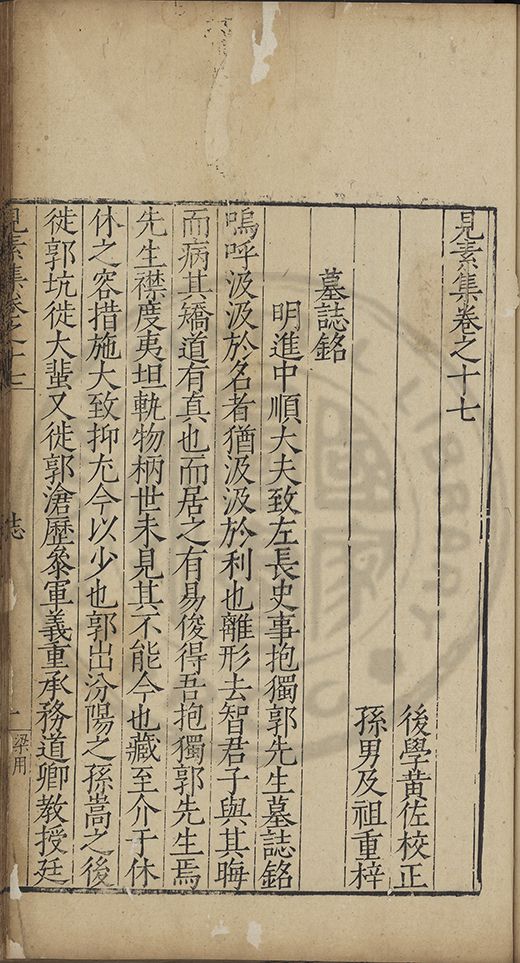 見素集卷之十七
後學黃佐校正
孫男及祖重梓
墓誌銘
明進中順大夫致左長史事抱獨郭先生墓誌銘
嗚呼汲汲於名者猶汲汲於利也離形去智君子與其晦
而病其矯道有真也而居之有易俊得吾抱獨郭先生焉
先生襟度夷坦軌物柄世未見其不能今也藏至介于休
休之容措施大致抑充今以少也郭出汾陽之孫嵩之後
徙郭坑徙大蜚又徙郭滄歷叅軍義重承務道卿教授廷
見素集卷之十七
志
一
梁用